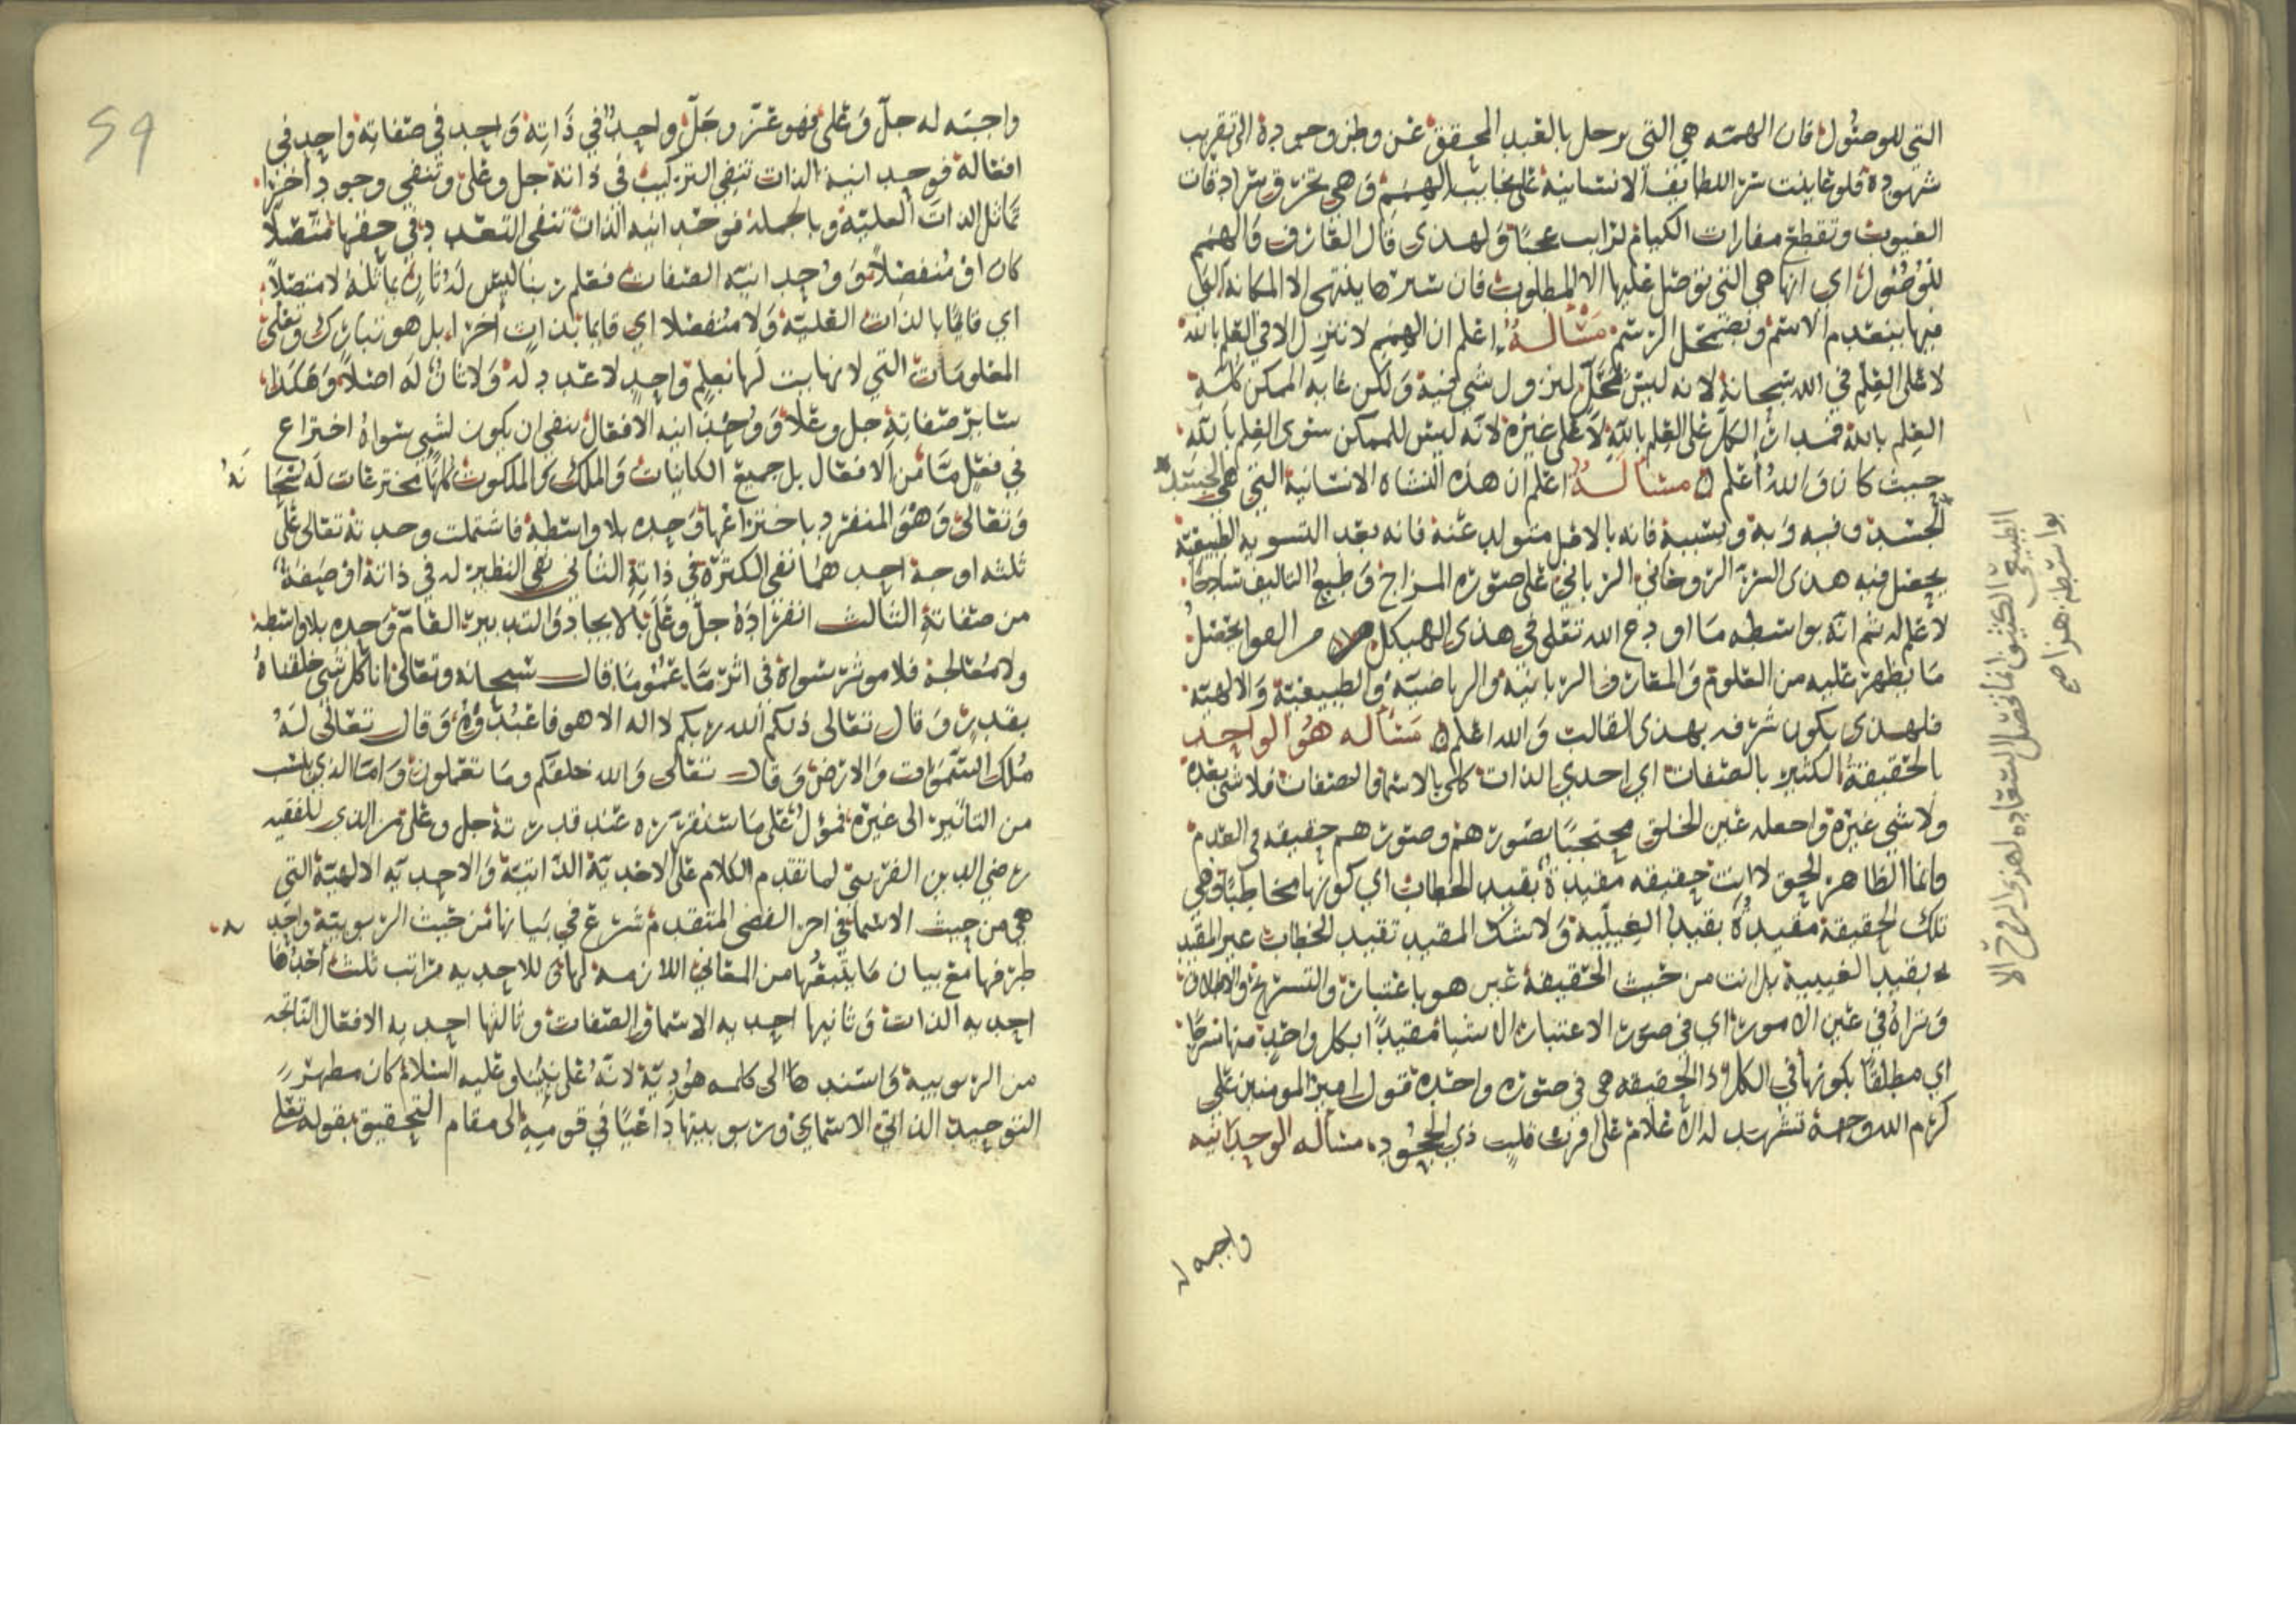 التي للوصول فان الهمه هي التي ترحل بالعبد المحقق عن وطن وجوده الى تقريب
شهوده فلو عاينت سر اللطايف الانسانية على نجايب الهمم وهي تخرق سرادقات
الغيوب وتقطع مفارات الكيان لرايت عجبا ولهذى قال العارف والهمم
للوصول اي انها هي التي توصل عليها الا المطلوب فان سيرها ينتهى الا المكانة التي
فيها ينعدم الاسم ويضمحل الرسم مسالة اعلم ان الهمم لا تنزل الا في العلم بالله
لا على العلم في الله سبحانه لانه ليس بمحل لنزول شي فيه ولكن غايه الممكن كله
العلم بالله فمدار الكل على العلم بالله لا على غيره لانه ليس للممكن سوى العلم بالله
حيث كان والله اعلم مسالة اعلم ان هذه النشاه الانسانية التي هي الجسد
الجسد وفيه وبه وبسببه فانه بالاصل متولد عنه فانه بعد التسويه الطبيعيه
يحصل فيه هذى السر الروحاني الرباني على صوره المزاج وطبع التاليف ساذجا
لا علم له ثم انه بواسطه ما اودع الله تعلى في هذى الهيكل من القوا يحصل
ما يظهر عليه من العلوم والمعارف الربانيه والرياضيه والطبيعية والالهيه
فلهذى يكون شرفه بهذى القالب والله اعلم مسأله هو الواحد
بالحقيقة الكثير بالصفات اي احدي الذات كلى بالاسما والصفات فلا شي بعده
ولا شي غيره واجعله عين الخلق محتجبا بصورهم وصورهم حقيقه في العدم
وانما الظاهر الحق لا انت حقيقه مقيدة بقيد الخطاب اي كونها مخاطبا وهي
تلك الحقيقة مقيدة بقيد الغيبيه ولا شك المقيد بقيد الخطاب غير المقيد
بقيد الغيبية بل انت من حيث الحقيقة غير هو باعتبار والتسريح والاطلاق
وتراه في عين الامور اي في صور الاعتبارات الاشيا مقيدا بكل واحد منها مسرحا
اي مطلقا بكونها في الكل اذ الحقيقه هي في صوره واحده قول امير المومنين على
كرم الله وجهه تشهد له اعلام على اقرار قلب ذي الجحود مسأله الوحدانيه
واجبه له
الطبيعى الكثيف انما تحصل السعاده لهذى الروح الا
بواسطه هذا صح
واجبه له جل وعلى فهو عز وجل واحد في ذاته واحد في صفاته واحد في
افعاله فوحدانية الذات تنفي التركيب في ذاته جل وعلى وتنفي وجود اخرا
تماثل الذات العلية وبالجمله فوحدانيه الذات تنفي التعدد في حقها متصلا
كان او منفصلا ووحدانيه الصفات فعلم ربنا ليس له ثان يماثله لا متصلا
اي قايما بالذات العلية ولا منفصلا اي قايما بذات اخرا بل هو تبارك وتعلى
المعلومات التي لا نهايت لها بعلم واحد لا عدد له ولا ثان له اصلا وهكذا
ساير صفاته جل وعلا ووحدانيه الافعال ينفي ان يكون لشي سواه اختراع
في فعل ما من الافعال بل جميع الكاينات والملك والملكوت كلها مخترعات له سبحانه
وتعالى وهو المنفرد باختراعها وحده بلا واسطة فاشتملت وحدته تعالى على
ثلثه اوجه احدهما نفي الكثرة في ذاته الثاني نفي النظير له في ذاته او صفة
من صفاته الثالث انفراده جل وعلى بالايجاد والتدبير العام وحده بلا واسطه
ولا معالجة فلا موثر سواه في اثر ما عموما قال سبحانه وتعالى انا كل شي خلقناه
بقدر وقال تعالى ذلكم الله ربكم لا اله الا هو فاعبدوه وقال تعالى له
ملك السموات والارض وقال تعالى والله خلقكم وما تعملون واما الذي ينسب
من التاثير الى غيره فمؤل على ما ستقرره عند قدرته جل وعلى من الذى للفقيه
رضي الدين القريني لما تقدم الكلام على الاحدية الذاتية والاحديه الالهية التي
هي من حيث الاسما في اخر الفص المتقدم شرع في بيانها من حيث الربوبيه واحد
طرفها مع بيان ما يتبعها من المعاني اللازمه لها وللاحديه مراتب ثلث احدها
احديه الذات وثانيها احديه الاسما والصفات وثالثها احديه الافعال الناتجه
من الربوبية واسندها الى كلمه هودية لانه على نبينا وعليه السلام كان مظهر
التوحيد الذاتي الاسماي وربوبيتها داعيا في قوميه الى مقام التحقيق بقوله تعلى
59